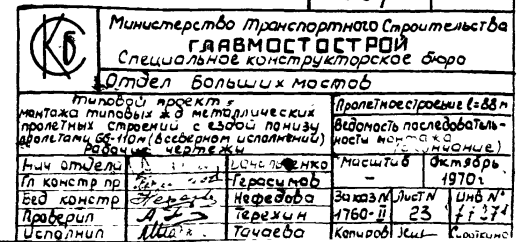 СКБ
Министерство Транспортного Строительства
ГЛАВМОСТОСТРОЙ
Специальное конструкторское бюро
Отдел больших мостов
Типовой проект
монтажа типовых ж.д металлических
пролетных строений с ездой понизу
пролетами 66-110м (в северном исполнении)
Рабочие чертежи
Пролетное строение l=88м
Ведомость последователь-
ности монтажа
(окончание)
Нач отдела
Масштаб Октябрь
Гл констр пр Герасимов – 1970г.
Вед констр Нефедова Заказ N Лист N Инв N°
Проверил Терехин 1760-II 23
Исполнил Тачаева Копиров